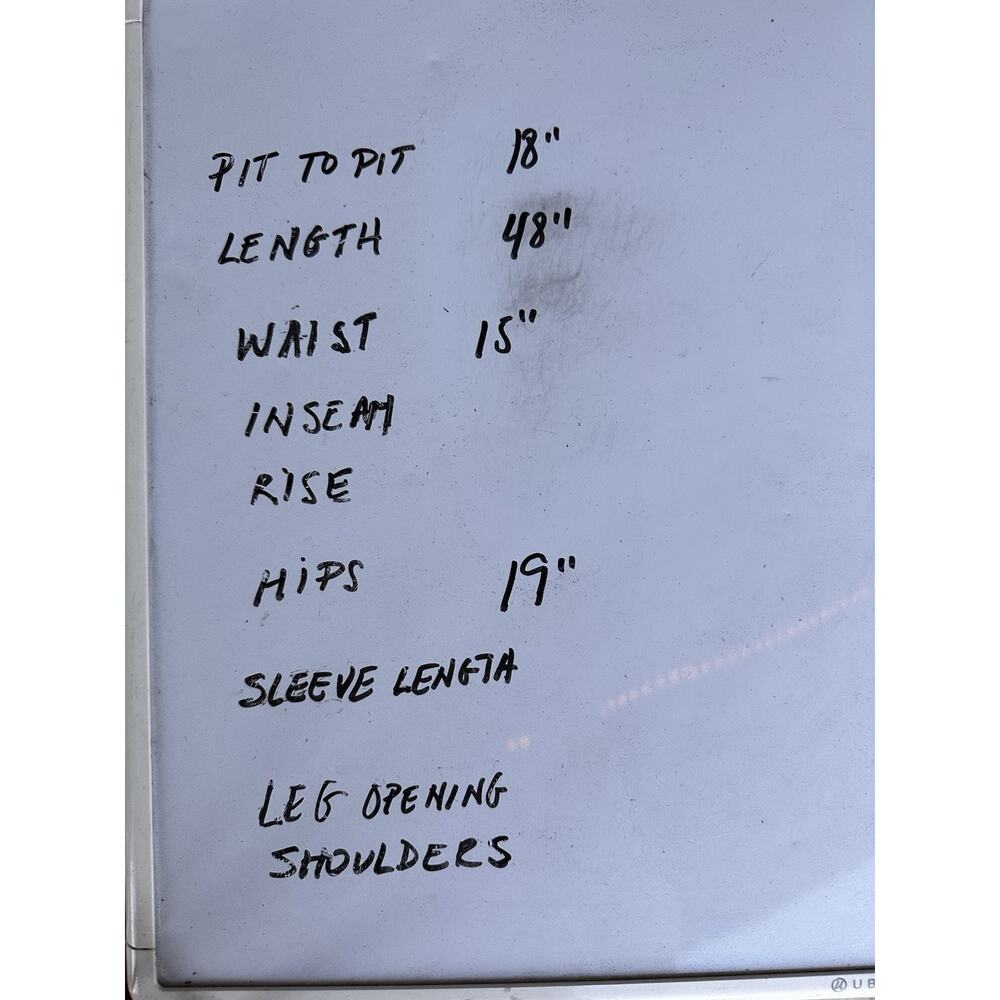 PIT TO PIT 18"
LENGTH 48"
WAIST 15"
INSEAM
RISE
HiPS 19"
SLEEVE LENGTH
LEG OPENING
SHOULDERS
UB